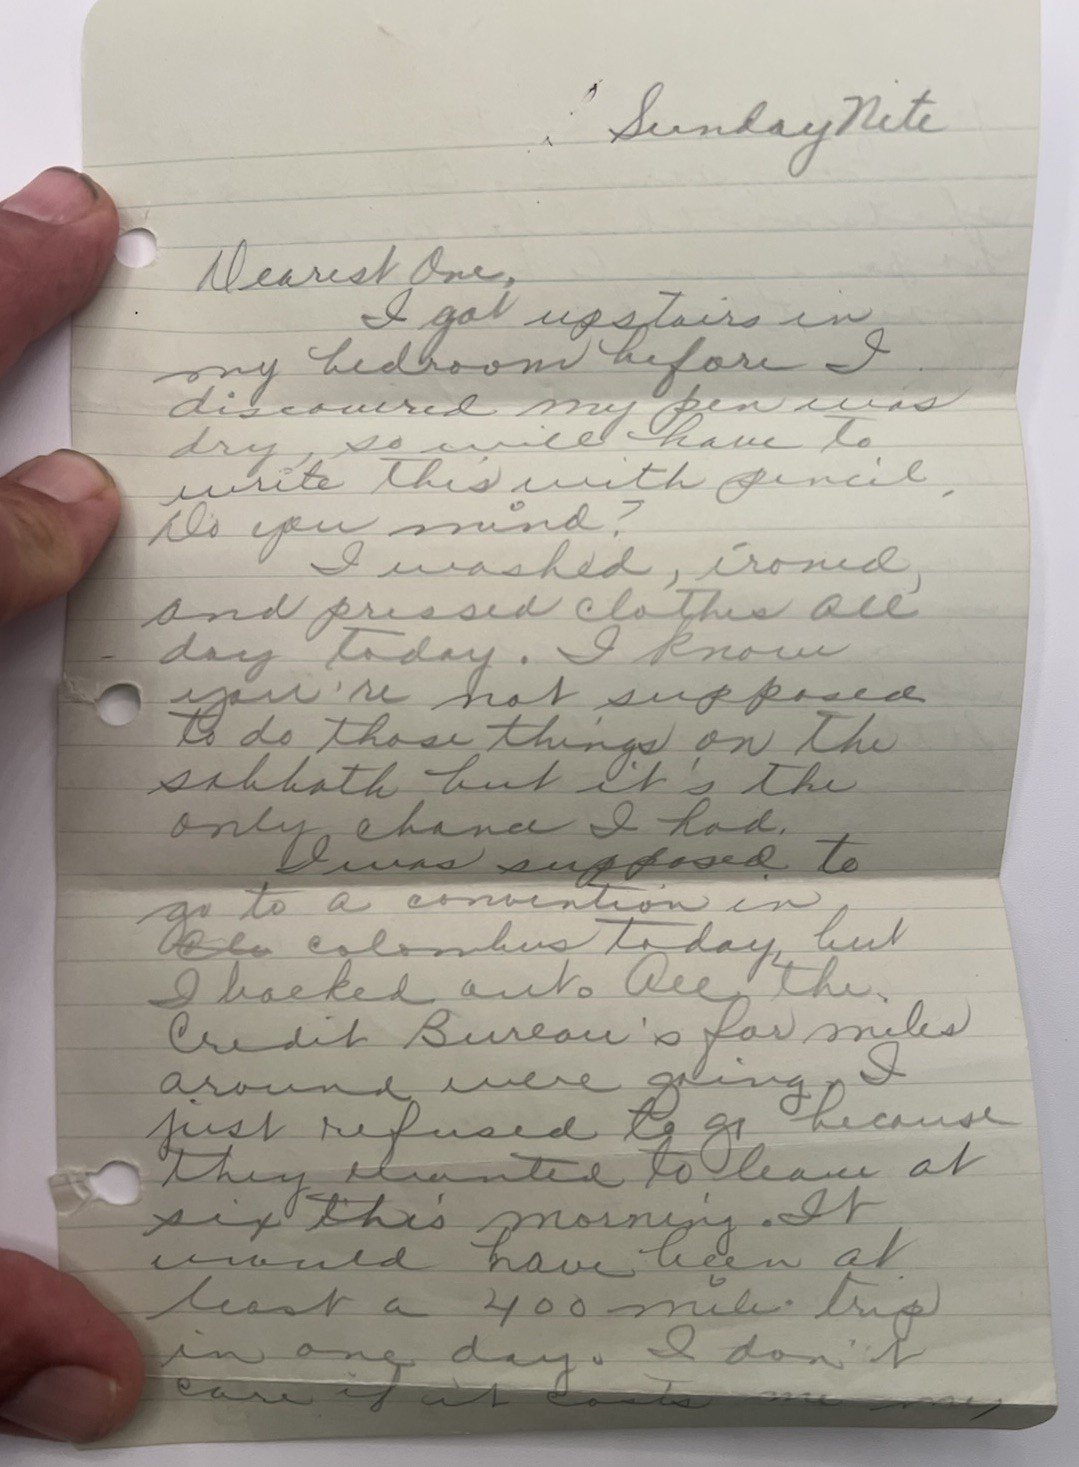 Sunday Nite
Dearest One,
I got upstairs in
my bedroom before I
discovered my pen was
dry, so will have to
write this with pencil.
Do you mind?
I washed, ironed,
and pressed clothes all
day today. I know
you're not supposed
to do those things on the
sabbath but it's the
only chance I had.
I was supposed to
go to a convention in
colombus today, but
I backed out. All the
Credit Bureau's for miles
around were going. I
just refused to go because
they wanted to leave at
six this morning. It
would have been at
least a 400 mile trip
in one day. I don't
care if it costs me my